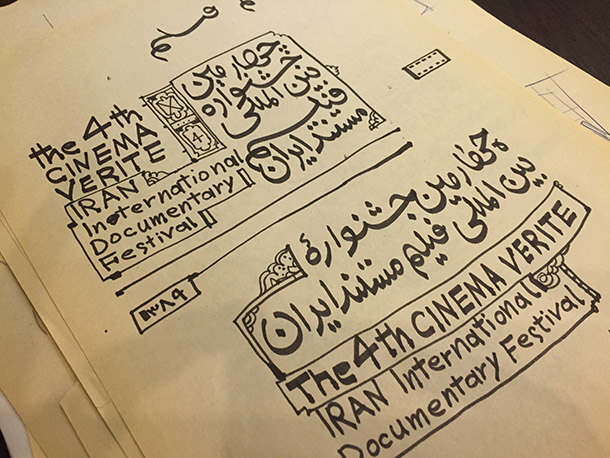 چهارمین
جشنواره
بین المللی
فیلم
مستند ایران
the 4th
CINEMA
VERITE
IRAN
Ineternational
Documentary
Festival
۱۳۸۹
چهارمین جشنوارهٔ
بین المللی فیلم مستند ایران
The 4th CINEMA VERITE
IRAN International
Documentary Festival